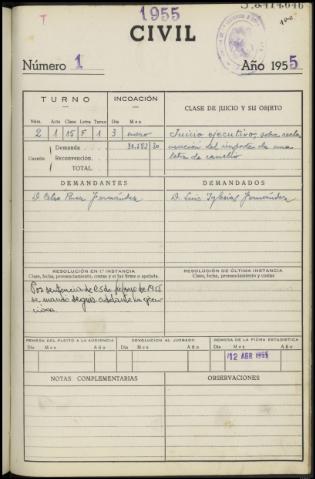 1955
CIVIL
Número 1 Año 1955
TURNO INCOACIÓN CLASE DE JUICIO Y SU OBJETO
Núm. Acta Clase Letra Turno Día Mes
2 1 15 F 1 3 enero
Demanda 30
Cuantía Reconvención.
TOTAL
Juicio ejecutivo, sobre recla
mación del importe de una
letra de cambio
DEMANDANTES DEMANDADOS
D. Perez Fernández D. Luis Iglesias Fernández
RESOLUCIÓN EN 1.ª INSTANCIA RESOLUCIÓN DE ÚLTIMA INSTANCIA
Clase, fecha, pronunciamiento, costas y si fue firme o apelada. Clase, fecha, pronunciamiento y costas
Por sentencia de 25 de febrero de 1955
se mandó seguir adelante la ejecu
ción
REMESA DEL PLEITO A LA AUDIENCIA DEVOLUCIÓN AL JUZGADO REMESA DE LA FICHA ESTADÍSTICA
Día Mes Año Día Mes Año Día Mes Año
12 ABR 1955
NOTAS COMPLEMENTARIAS OBSERVACIONES